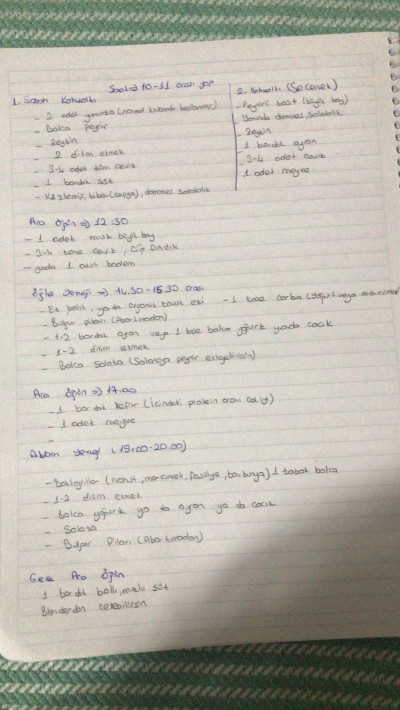 Saat => 10-11 arası yap
1. Sabah Kahvaltı
- 2 adet yumurta (normal kıvamda haşlanmış)
- Bolca peynir
- Zeytin
- 2 dilim ekmek
- 3-4 adet tüm ceviz
- 1 bardak süt
- Közlemiş, biber (kapya), domates salatalık
2. Kahvaltı (Seçenek)
- Peynirli tost (büyük boy)
- Yanında domates, salatalık
- Zeytin
1 bardak ayran
3-4 adet ceviz
1 adet meyve
Ara Öğün => 12:30
- 1 adet muz büyük boy
- 3-4 tane ceviz, çiğ fındık
- yada 1 avuç badem
Öğle yemeği => 14.30-15.30 arası
- Et balık, yada organik tavuk eti - 1 kase çorba ( veya mercimek)
- Bulgur pilavı (Abartmadan)
- 1-2 bardak ayran veya 1 kase bolca yoğurt yada cacık
- 1-2 dilim ekmek
- Bolca salata (Salataya peynir ekleyebilirsin)
Ara Öğün => 17.00
- 1 bardak kefir (İçindeki protein oranı)
- 1 adet meyve
-
Akşam yemeği (19:00-20.00)
- Baklagiller (nohut, mercimek, fasülye, barbunya) 1 tabak bolca
- 1-2 dilim ekmek
- Bolca yoğurt ya da ayran ya da cacık
- Salata
- Bulgur Pilavı (Abartmadan)
Gece Ara Öğün
1 bardak ballı, muzlu süt
Blenderdan çekebilirsin